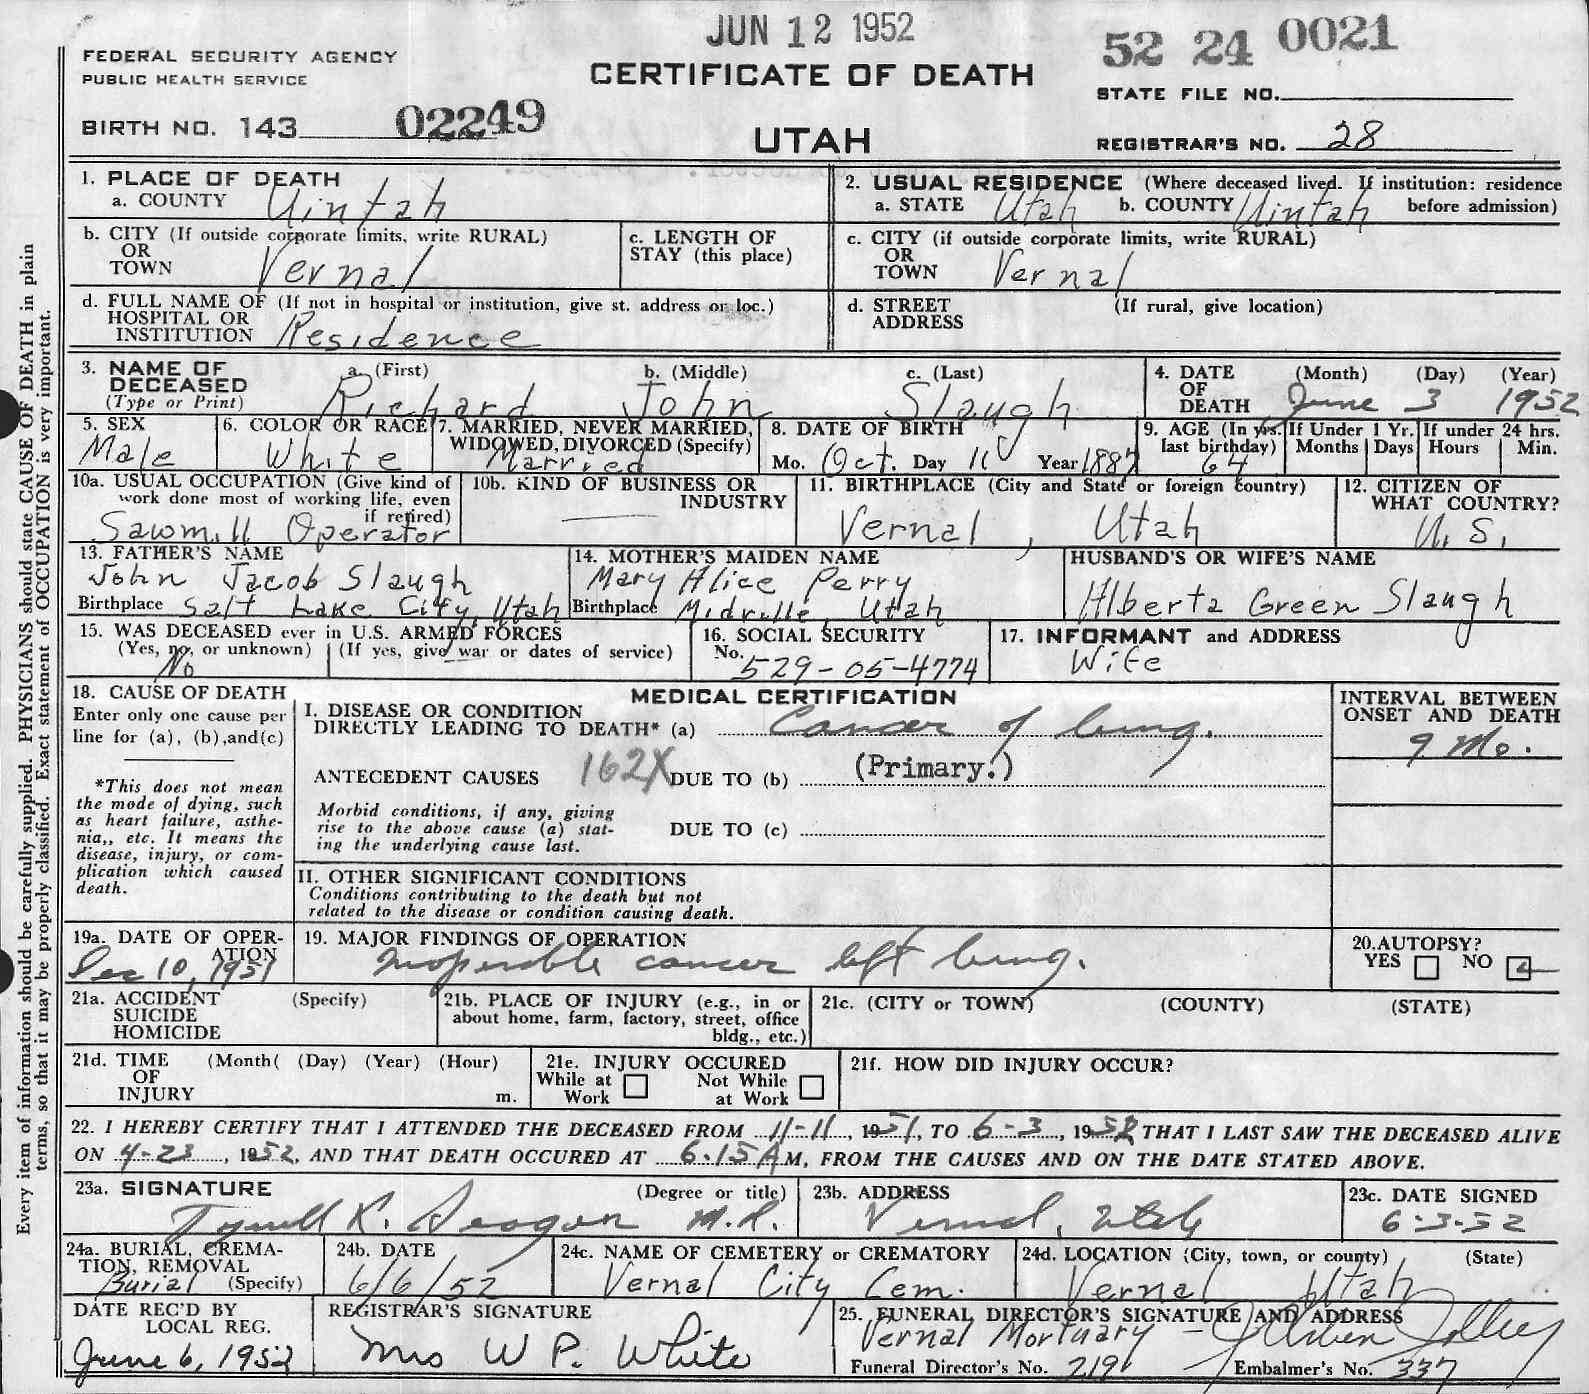 JUN 12 1952
52 24 0021
FEDERAL SECURITY AGENCY
PUBLIC HEALTH SERVICE
CERTIFICATE OF DEATH
STATE FILE NO.
BIRTH NO. 143 02249
UTAH
REGISTRAR'S NO. 28
1. PLACE OF DEATH
a. COUNTY Uintah
2. USUAL RESIDENCE (Where deceased lived. If institution: residence before admission)
a. STATE Utah b. COUNTY Uintah
b. CITY (If outside corporate limits, write RURAL)
OR
TOWN Vernal
c. LENGTH OF
STAY (this place)
c. CITY (if outside corporate limits, write RURAL)
OR
TOWN Vernal
d. FULL NAME OF (If not in hospital or institution, give st. address or loc.)
HOSPITAL OR
INSTITUTION Residence
d. STREET (If rural, give location)
ADDRESS
3. NAME OF
DECEASED
(Type or Print)
a. (First) b. (Middle) c. (Last)
Richard John Slaugh
4. DATE (Month) (Day) (Year)
OF
DEATH June 3 1952
5. SEX
Male
6. COLOR OR RACE
White
7. MARRIED, NEVER MARRIED,
WIDOWED, DIVORCED (Specify)
Married
8. DATE OF BIRTH
Mo. Oct. Day 11 Year 1887
9. AGE (In yrs. last birthday) 64
If Under 1 Yr. Months Days
If under 24 hrs. Hours Min.
10a. USUAL OCCUPATION (Give kind of
work done most of working life, even
if retired)
Sawmill Operator
10b. KIND OF BUSINESS OR
INDUSTRY
11. BIRTHPLACE (City and State or foreign country)
Vernal, Utah
12. CITIZEN OF
WHAT COUNTRY?
U. S.
13. FATHER'S NAME
John Jacob Slaugh
Birthplace Salt Lake City, Utah
14. MOTHER'S MAIDEN NAME
Mary Alice Perry
Birthplace Midville, Utah
HUSBAND'S OR WIFE'S NAME
Alberta Green Slaugh
15. WAS DECEASED ever in U.S. ARMED FORCES
(Yes, no, or unknown) (If yes, give war or dates of service)
No
16. SOCIAL SECURITY
No. 529-05-4774
17. INFORMANT and ADDRESS
Wife
18. CAUSE OF DEATH
Enter only one cause per
line for (a), (b),and(c)
*This does not mean
the mode of dying, such
as heart failure, asthe-
nia,, etc. It means the
disease, injury, or com-
plication which caused
death.
MEDICAL CERTIFICATION
I. DISEASE OR CONDITION
DIRECTLY LEADING TO DEATH* (a) Cancer of lung.
ANTECEDENT CAUSES 162X DUE TO (b) (Primary.)
Morbid conditions, if any, giving
rise to the above cause (a) stat-
ing the underlying cause last.
DUE TO (c)
INTERVAL BETWEEN
ONSET AND DEATH
9 Mo.
II. OTHER SIGNIFICANT CONDITIONS
Conditions contributing to the death but not
related to the disease or condition causing death.
19a. DATE OF OPER-
ATION
Dec 10, 1951
19. MAJOR FINDINGS OF OPERATION
Inoperable cancer left lung.
20.AUTOPSY?
YES NO
21a. ACCIDENT (Specify)
SUICIDE
HOMICIDE
21b. PLACE OF INJURY (e.g., in or
about home, farm, factory, street, office
bldg., etc.)
21c. (CITY or TOWN) (COUNTY) (STATE)
21d. TIME (Month( (Day) (Year) (Hour)
OF
INJURY m.
21e. INJURY OCCURED
While at Work Not While at Work
21f. HOW DID INJURY OCCUR?
22. I HEREBY CERTIFY THAT I ATTENDED THE DECEASED FROM 11-11, 1951, TO 6-3, 1952 THAT I LAST SAW THE DECEASED ALIVE
ON 4-23, 1952, AND THAT DEATH OCCURED AT 6:15 A M, FROM THE CAUSES AND ON THE DATE STATED ABOVE.
23a. SIGNATURE (Degree or title)
M.D.
23b. ADDRESS
Vernal, Utah
23c. DATE SIGNED
6-3-52
24a. BURIAL, CREMA-
TION, REMOVAL
Burial (Specify)
24b. DATE
6/6/52
24c. NAME OF CEMETERY or CREMATORY
Vernal City Cem.
24d. LOCATION (City, town, or county) (State)
Vernal Utah
DATE REC'D BY
LOCAL REG.
June 6, 1952
REGISTRAR'S SIGNATURE
Mrs W P. White
25. FUNERAL DIRECTOR'S SIGNATURE AND ADDRESS
Vernal Mortuary -
Funeral Director's No. 219 Embalmer's No. 337
Every item of information should be carefully supplied. PHYSICIANS should state CAUSE OF DEATH in plain
terms, so that it may be properly classified. Exact statement of OCCUPATION is very important.